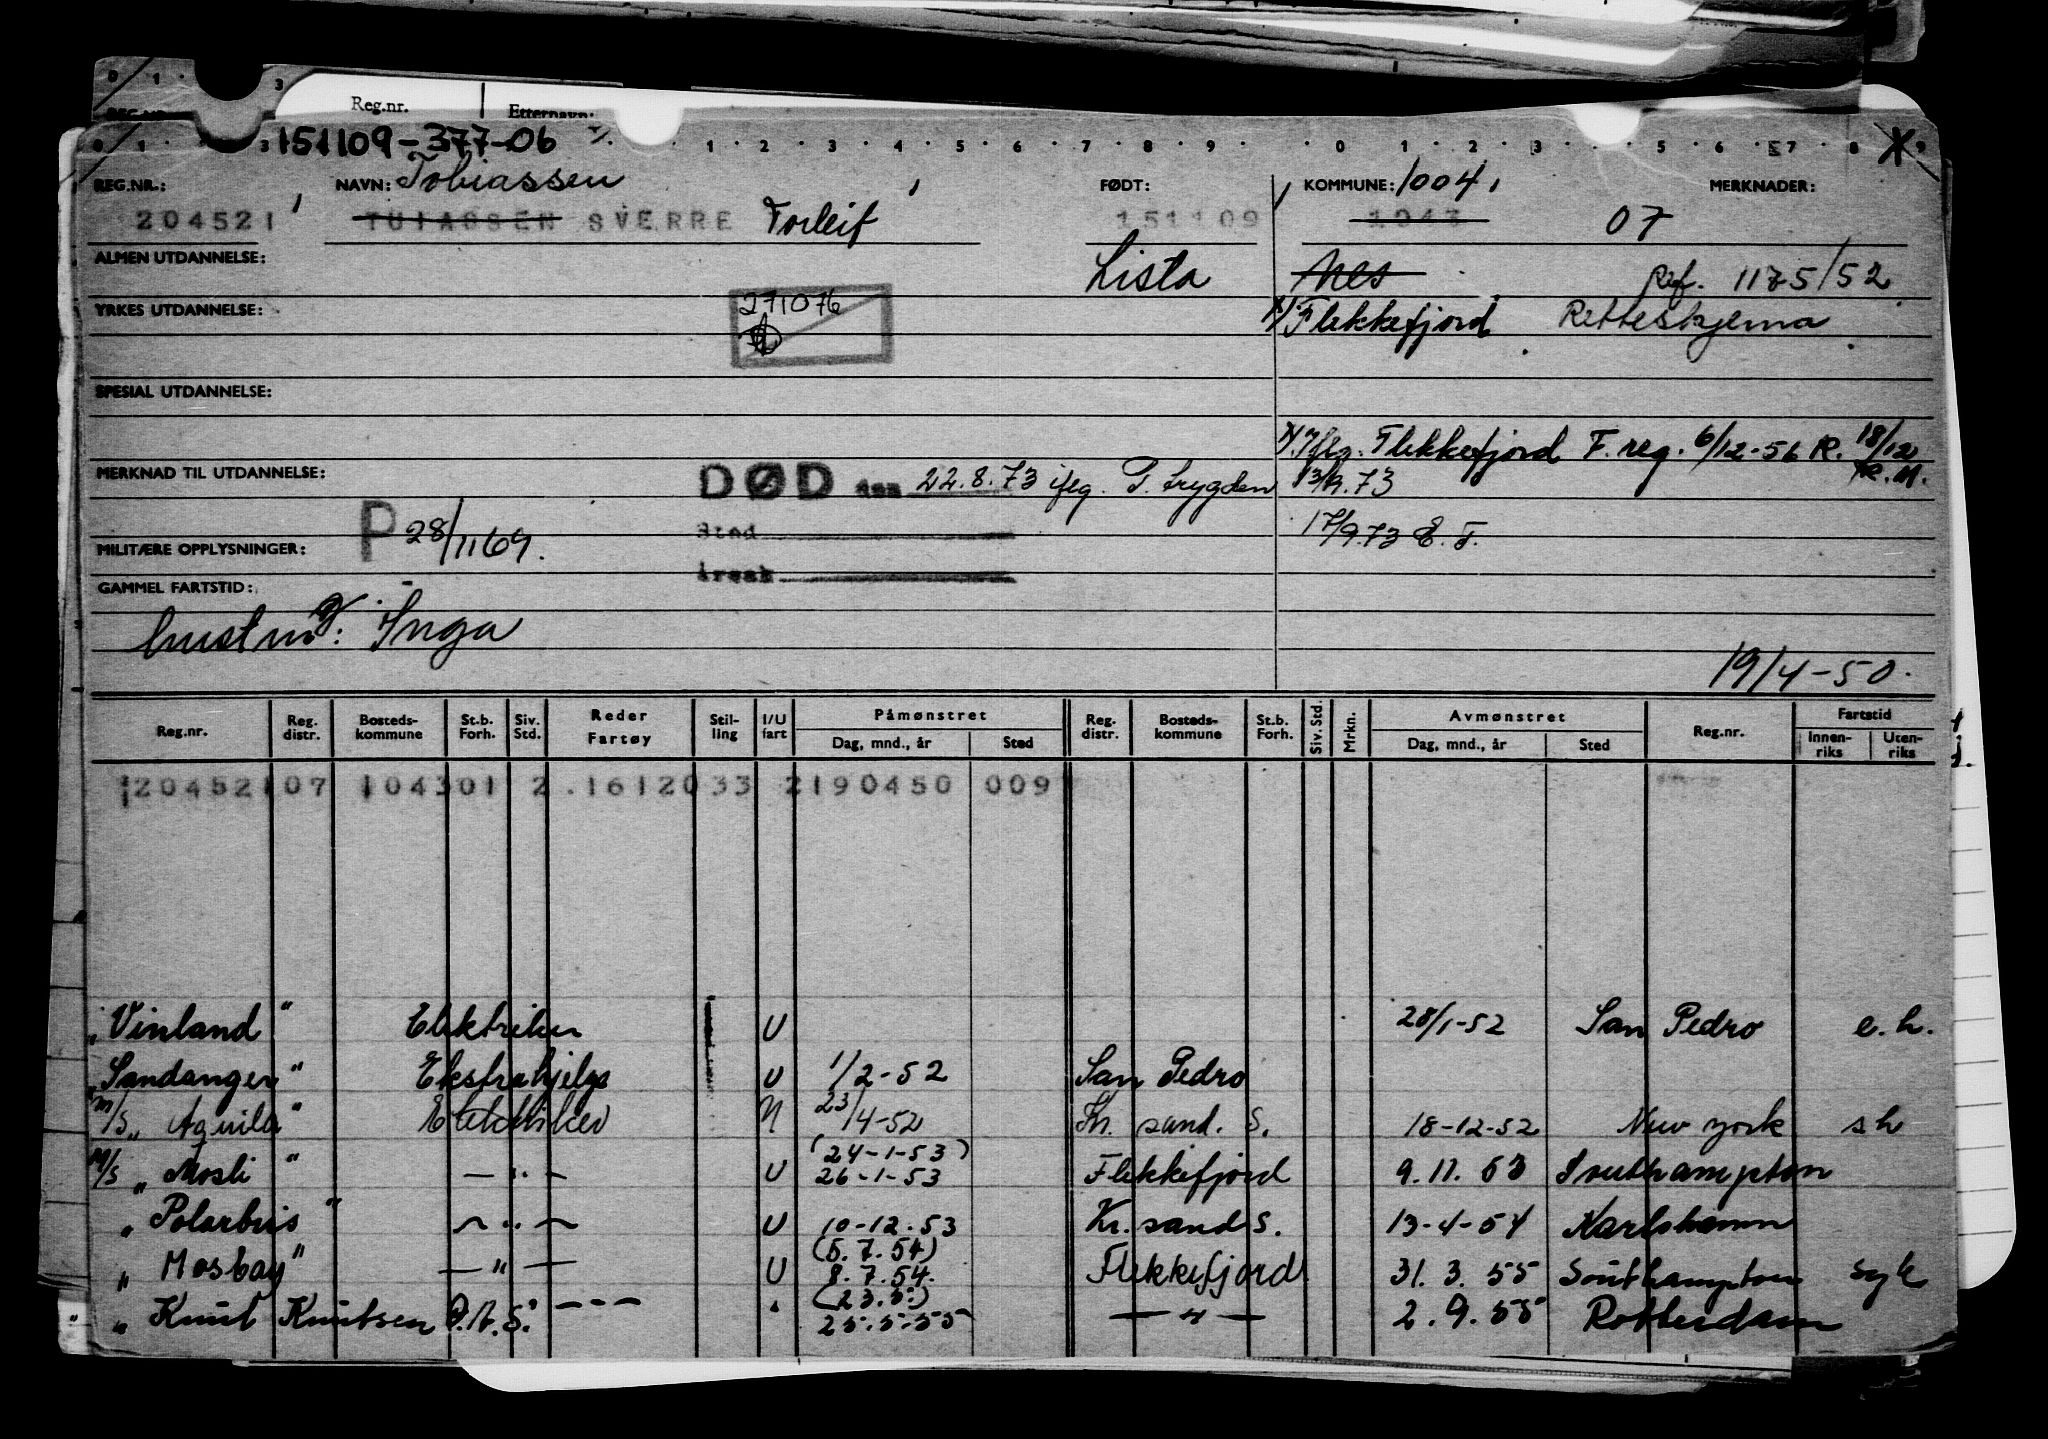 0 1 3
REG.NR.
Reg.nr. Etternavn:
151109-377-06 %
0 1 3 1 2 3 4 5 6 7 8 9 0 1 2 3 5 6 7 8 9
REG.NR.: NAVN: Tobiassen FØDT: KOMMUNE: 1004 MERKNADER:
204521 TOIASSEN SVERRE Torleif 151109 1043 07
ALMEN UTDANNELSE: Lista Nes Ref. 1175/52
YRKES UTDANNELSE: 271076 x/ Flekkefjord Retteskjema
SPESIAL UTDANNELSE:
x/ Iflg. Flekkefjord F. reg. 6/12-56 R. 18/12 R.M.
MERKNAD TIL UTDANNELSE: DØD den 22.8.73 iflg. P. trygden 13/9.73
Sted 17/9.73 E.T.
MILITÆRE OPPLYSNINGER: P 28/1169.
Årsak
GAMMEL FARTSTID:
hustru: Inga
19/4-50.
Reg.nr. Reg. distr. Bosteds- kommune St.b. Forh. Siv. Std. Reder Fartøy Stil- ling I/U fart Påmønstret Dag, mnd., år Sted Reg. distr. Bosteds- kommune St.b. Forh. Siv. Std. Mrkn. Avmønstret Dag, mnd., år Sted Reg.nr. Fartstid Innen- riks Uten- riks
204521 07 1043 01 2 .1612033 2190450 009
"Vinland" Elektriker U 28/1-52 San Pedro e.h.
"Sandanger" Ekstrahjelp U 1/2-52 San Pedro
M/S "Aquila" Elektriker N 23/4-52 Kr. sand. S. 18-12-52 New York sh
(24-1-53)
M/S "Mosli" — " — U 26-1-53 Flekkefjord 9.11.53 Southampton
"Polarbris" — " — U 10-12-53 Kr. sand S. 13-4-54 Karlshamn
(5.7.54)
"Mosbay" — " — U 8.7.54. Flekkefjord 31.3.55 Southampton syk
(23.5.)
"Knut Knutsen O.A.S." — — — 25.5.55 — " — 2.9.55 Rotterdam